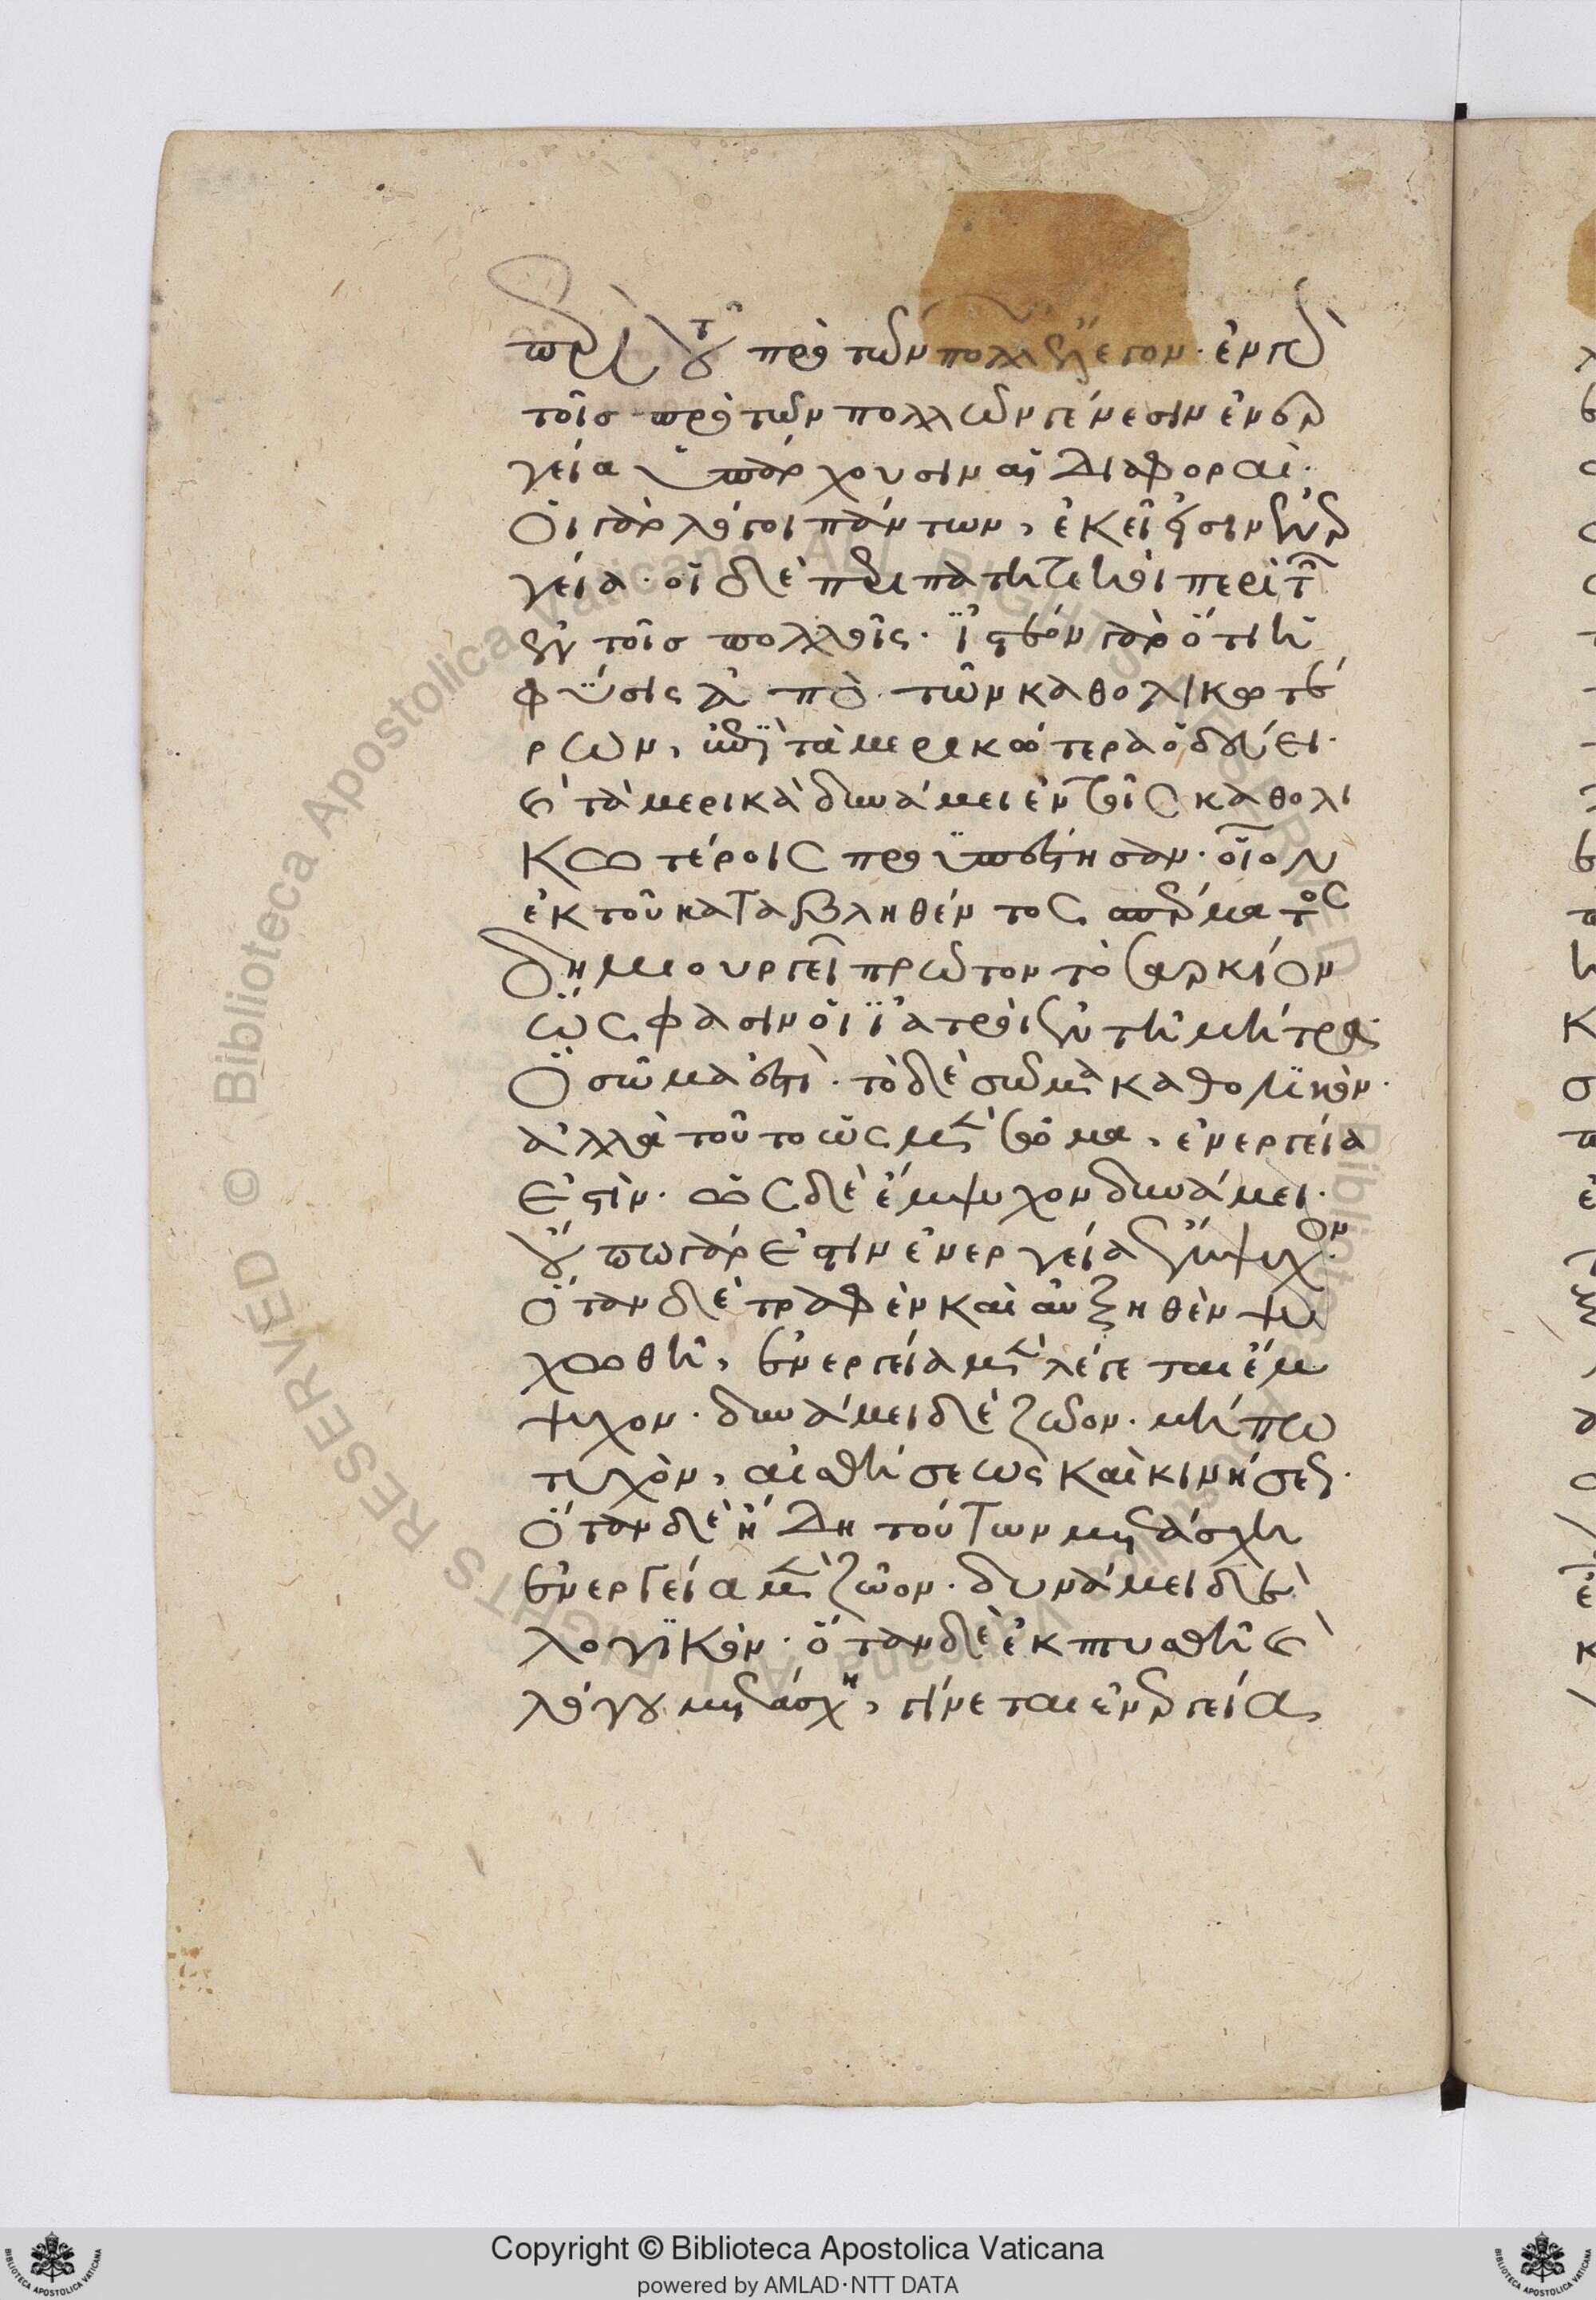 περὶ τοῦ πρὸ τῶν πολλῶν ἔλεγον· ἐν γὰρ
τοῖς πρὸ τῶν πολλῶν γένεσιν ἐνερ
γεία ὑπάρχουσιν αἱ διαφοραί·
Οἱ γὰρ λόγοι πάντων, ἐκεῖ εἰσιν ἐνερ
γεία· οἱ δὲ περιπατητικοὶ περὶ τῶν
ἐν τοῖς πολλοῖς· ἰστέον γὰρ ὅτι ἡ
φύσις ἀπὸ τῶν καθολικωτέ
ρων, ἐπὶ τὰ μερικώτερα ὁδεύει·
καὶ τὰ μερικὰ δυνάμει ἐν τοῖς καθολι
κωτέροις προϋπέστησαν· οἷον
ἐκ τοῦ καταβληθέντος σπέρματος
δημιουργεῖ πρῶτον τὸ σαρκίον
ὥς φασιν οἱ ἰατροὶ ἐν τῆ μήτρα·
Ὃ σῶμα ἐστί· τὸ δὲ σῶμα καθολικόν·
ἀλλὰ τοῦτο ὡς μὲν σῶμα, ἐνεργεία
ἐστίν· ὡς δὲ ἔμψυχον δυνάμει·
οὔπω γάρ ἐστιν ἐνεργεία ἔμψυχον·
Ὅταν δὲ τραφὲν καὶ αὐξηθὲν ψυ
χωθῆ, ἐνεργεία μὲν λέγεται ἔμ
ψυχον· δυνάμει δὲ ζῶον· μήπω
τυχὸν, αἰσθήσεως καὶ κινήσεως·
Ὅταν δὲ ἤδη τούτων μετάσχη
ἐνεργεία μὲν ζῶον· δυνάμει δὲ
λογικόν· ὅταν δὲ ἐκπτυσθῆ καὶ
λόγου μετάσχη, γίνεται ἐνεργεία
Copyright © Biblioteca Apostolica Vaticana
powered by AMLAD·NTT DATA